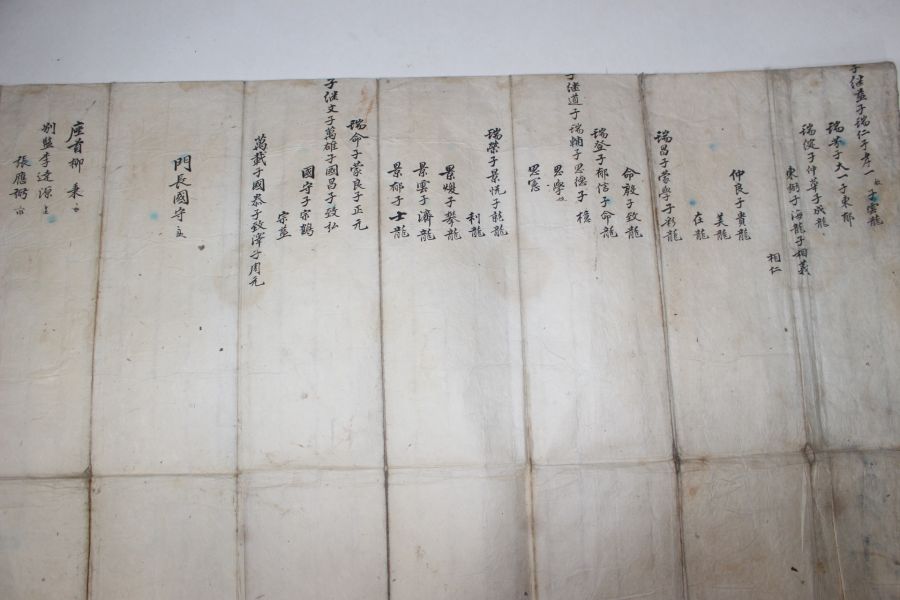 子継益子瑞仁子孝一 子雲龍
瑞芳子大一子東郁
瑞俊子仲華子成龍
東弼子海龍子相義
相仁
仲良子貴龍
美龍
在龍
瑞昌子蒙學子彩龍
命殷子致龍
瑞登子郁信子命龍
子継道子瑞輔子思德子
思學
思
瑞榮子景悅子乾龍
利龍
景煥子攀龍
景雲子濟龍
景郁子士龍
瑞命子蒙良子正元
子継文子萬雄子國昌子致弘
國守子宗鶴
宗益
萬載子國泰子致澤子周元
門長國守
座首柳
別監李達源
張應弼